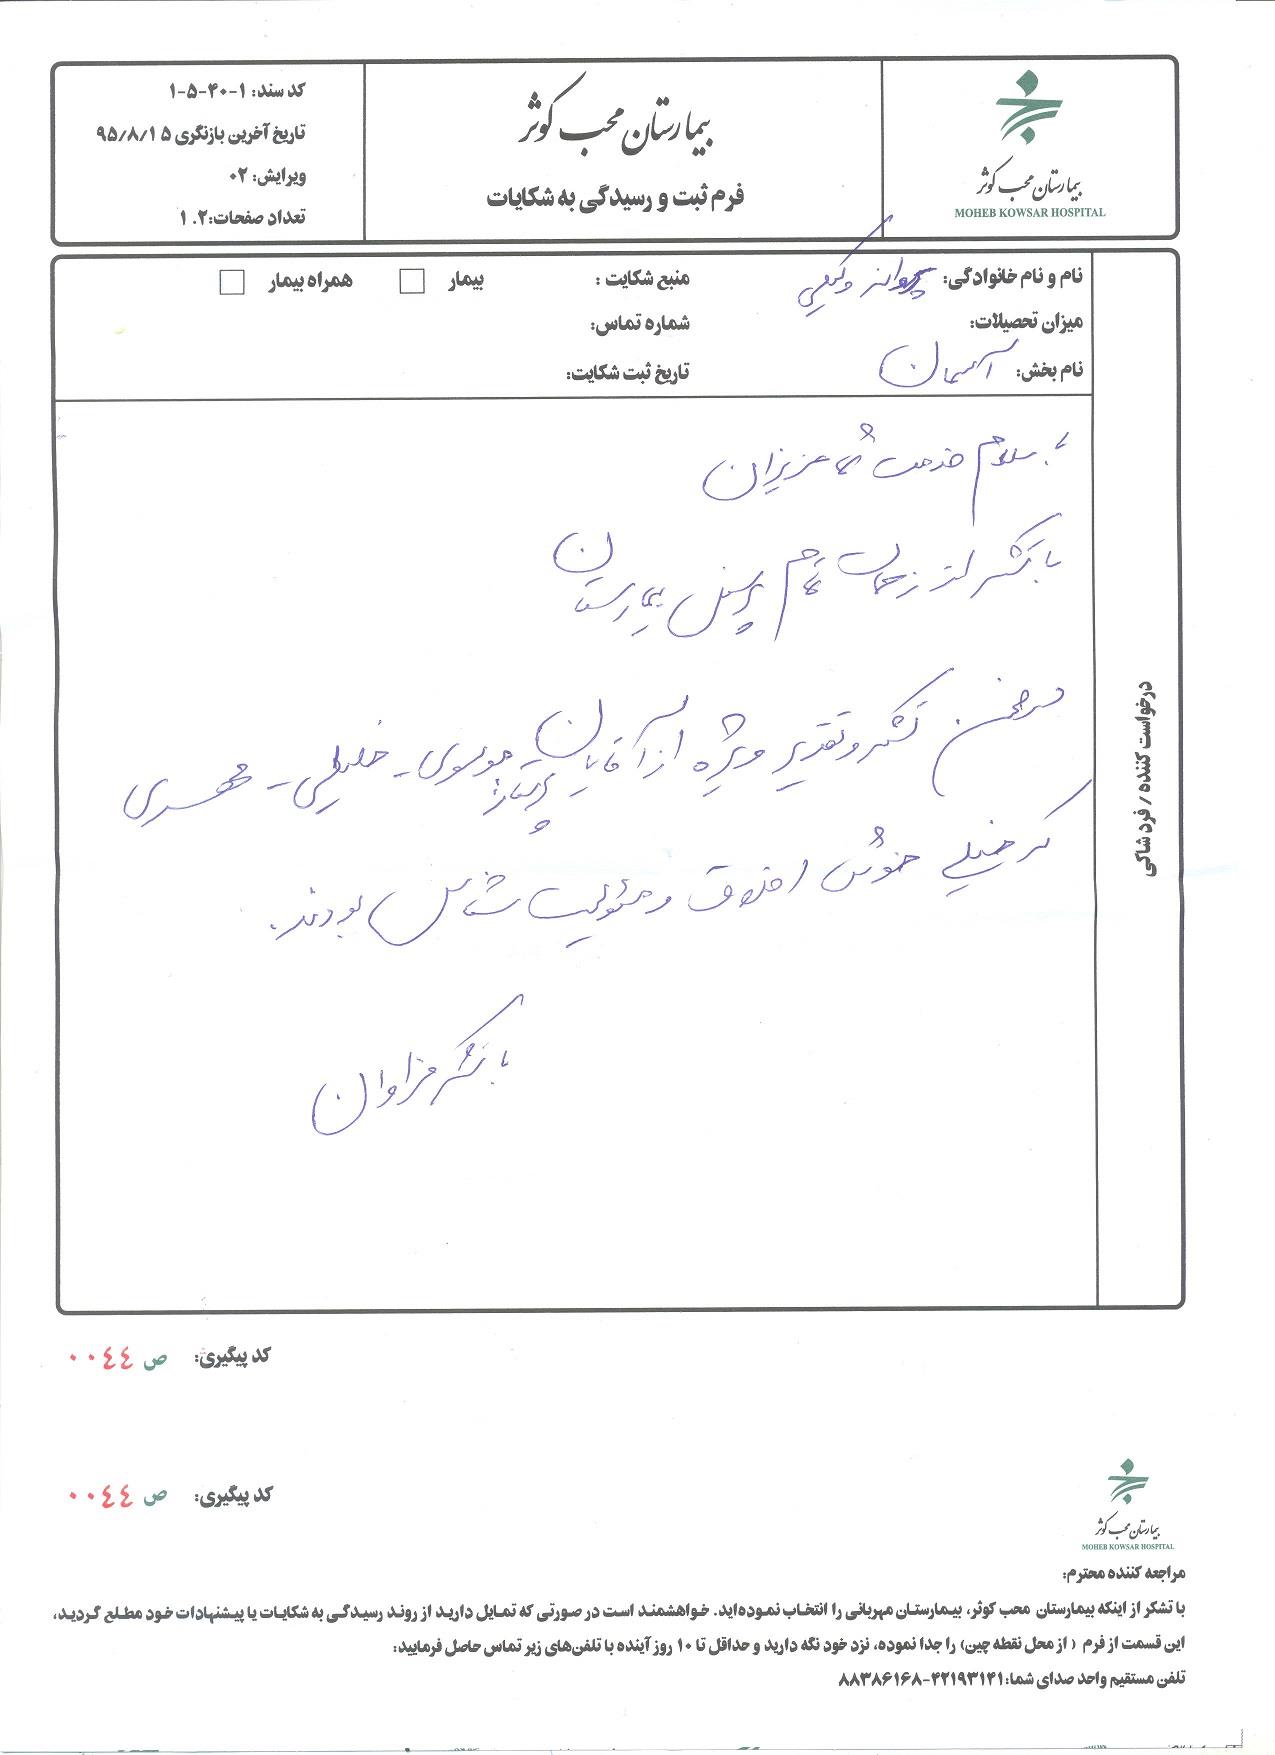 بیمارستان محب کوثر
MOHEB KOWSAR HOSPITAL
بیمارستان محب کوثر
فرم ثبت و رسیدگی به شکایات
کد سند: ۱-۴۰-۵-۱
تاریخ آخرین بازنگری ۹۵/۸/۱۵
ویرایش: ۰۲
تعداد صفحات: ۱.۲
نام و نام خانوادگی: پروانه وکیلی منبع شکایت : بیمار همراه بیمار
میزان تحصیلات: شماره تماس:
نام بخش: آسمان تاریخ ثبت شکایت:
درخواست کننده / فرد شاکی
با سلام خدمت شما عزیزان
با تشکر از زحمات تمام پرسنل بیمارستان
در ضمن تشکر و تقدیر ویژه از آقایان پرستار موسوی - خلیلی - مهدی
که خیلی خوش اخلاق و مسئولیت شناس بودند.
با تشکر فراوان
کد پیگیری: ص ٠٠٤٤
کد پیگیری: ص ٠٠٤٤
بیمارستان محب کوثر
MOHEB KOWSAR HOSPITAL
مراجعه کننده محترم:
با تشکر از اینکه بیمارستان محب کوثر، بیمارستان مهربانی را انتخاب نموده‌اید. خواهشمند است در صورتی که تمایل دارید از روند رسیدگی به شکایات یا پیشنهادات خود مطلع گردید،
این قسمت از فرم (از محل نقطه چین) را جدا نموده، نزد خود نگه دارید و حداقل تا ۱۰ روز آینده با تلفن‌های زیر تماس حاصل فرمایید:
تلفن مستقیم واحد صدای شما: ۴۲۱۹۳۱۴۱-۸۸۳۸۶۱۶۸